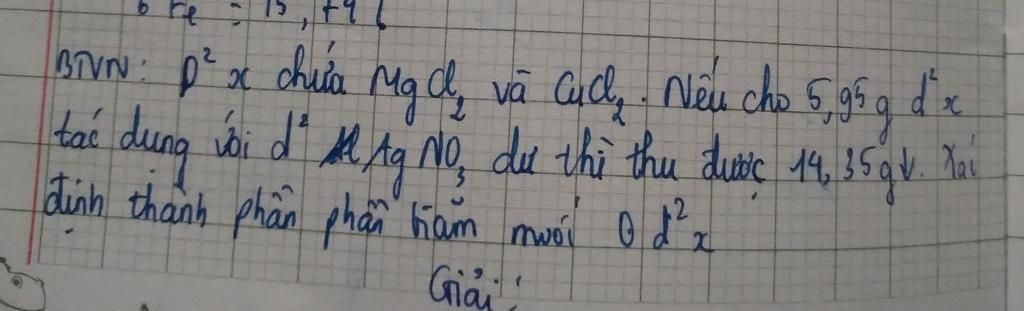 Fe = 15,
BTVN: D² x chứa MgCl₂ và CuCl₂. Nếu cho 5,95g d² x
tác dụng với d² AgNO₃ dư thì thu được 14,35g↓. Xác
định thành phần phần trăm muối d² x
Giải: